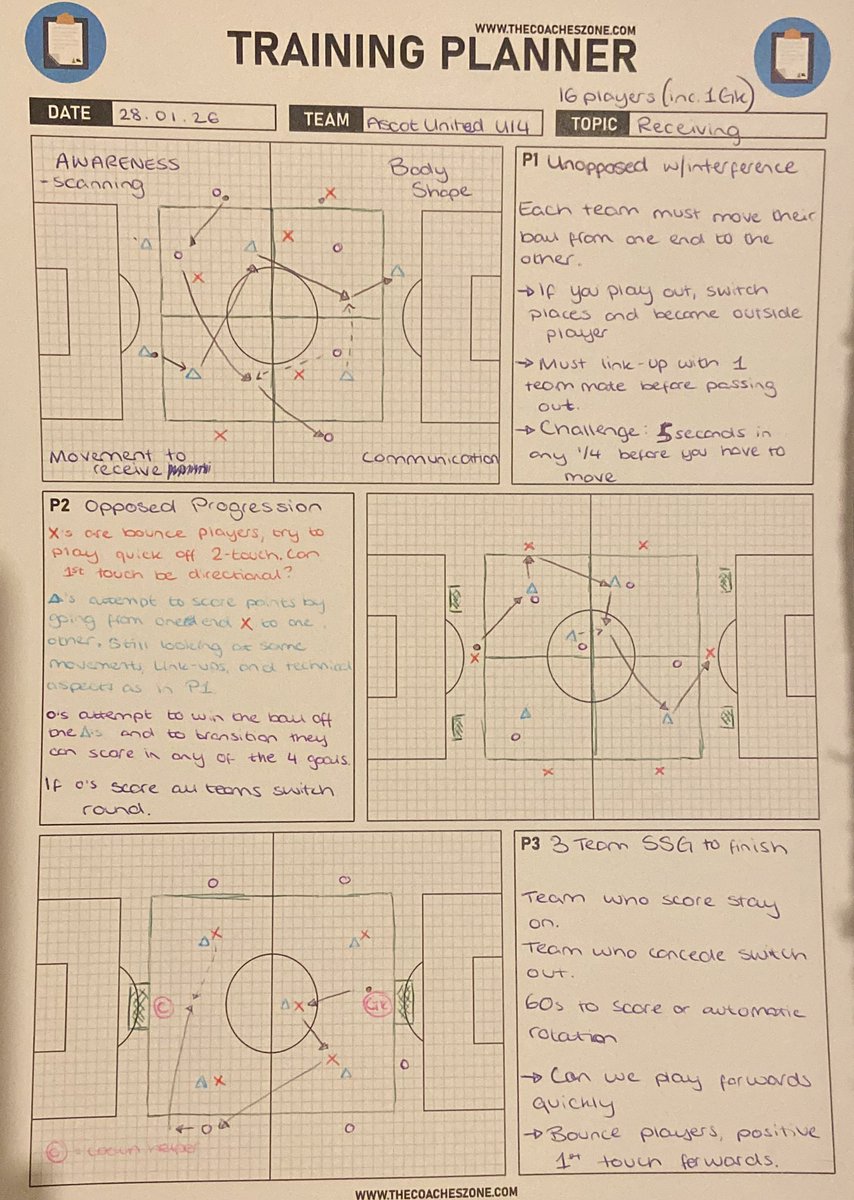 WWW.THECOACHESZONE.COM
TRAINING PLANNER
16 players (inc. 1 GK)
DATE 28.01.26
TEAM Ascot United U14
TOPIC Receiving
AWARENESS
- scanning
Body
Shape
Movement to
receive
Communication
P1 Unopposed w/interference
Each team must move their
ball from one end to the
other.
→ If you play out, switch
places and become outside
player
→ Must link-up with 1
team mate before passing
out.
→ Challenge: 5 seconds in
any 1/4 before you have to
move
P2 Opposed Progression
X's are bounce players, try to
play quick off 2-touch. Can
1st touch be directional?
△'s attempt to score points by
going from one end X to the
other. Still looking at same
movements, link-ups, and technical
aspects as in P1
O's attempt to win the ball off
the △'s and to transition they
can score in any of the 4 goals.
If O's score all teams switch
round.
C
GK
C = coach helper
P3 3 Team SSG to finish
Team who score stay
on.
Team who concede switch
out.
60s to score or automatic
rotation
→ Can we play forwards
quickly
→ Bounce players, positive
1st touch forwards.
WWW.THECOACHESZONE.COM